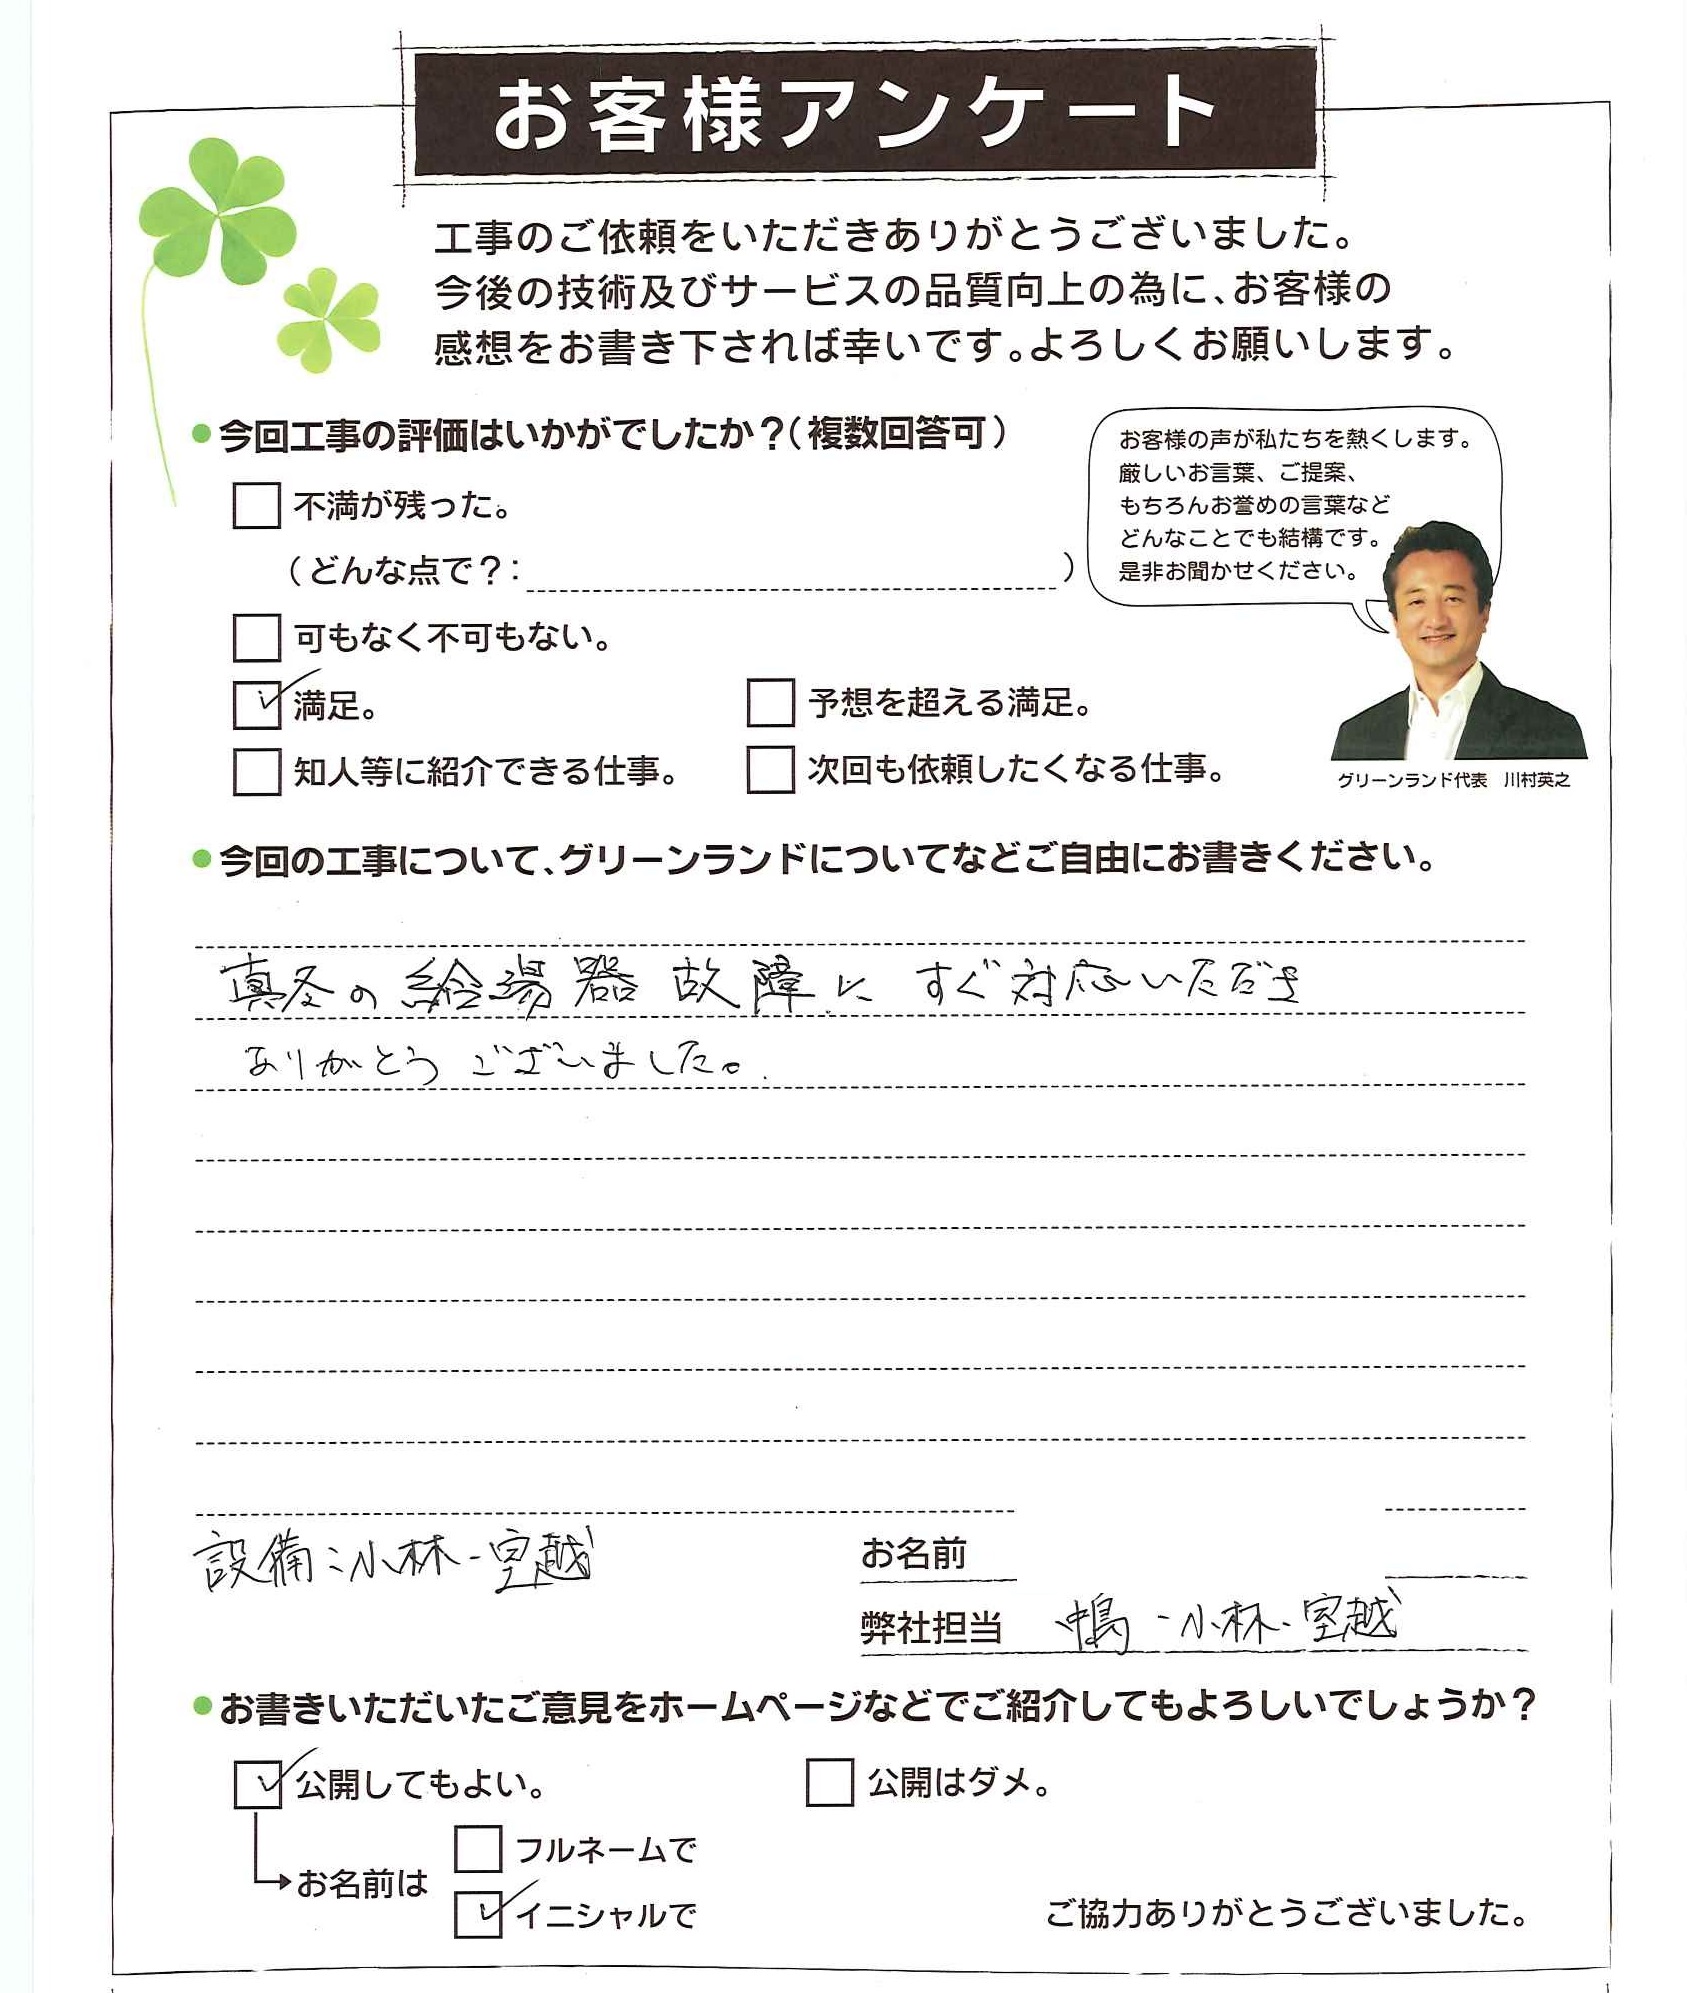 お客様アンケート
工事のご依頼をいただきありがとうございました。
今後の技術及びサービスの品質向上の為に、お客様の
感想をお書き下されば幸いです。よろしくお願いします。
●今回工事の評価はいかがでしたか？（複数回答可）
お客様の声が私たちを熱くします。
厳しいお言葉、ご提案、
もちろんお誉めの言葉など
どんなことでも結構です。
是非お聞かせください。
不満が残った。
（どんな点で？：　）
可もなく不可もない。
満足。
予想を超える満足。
知人等に紹介できる仕事。
次回も依頼したくなる仕事。
グリーンランド代表　川村英之
●今回の工事について、グリーンランドについてなどご自由にお書きください。
真冬の給湯器故障に すぐ対応いただき
ありがとうございました。
設備：小林・室越
お名前
弊社担当 鴨・小林・室越
●お書きいただいたご意見をホームページなどでご紹介してもよろしいでしょうか？
公開してもよい。
公開はダメ。
フルネームで
お名前は
イニシャルで
ご協力ありがとうございました。